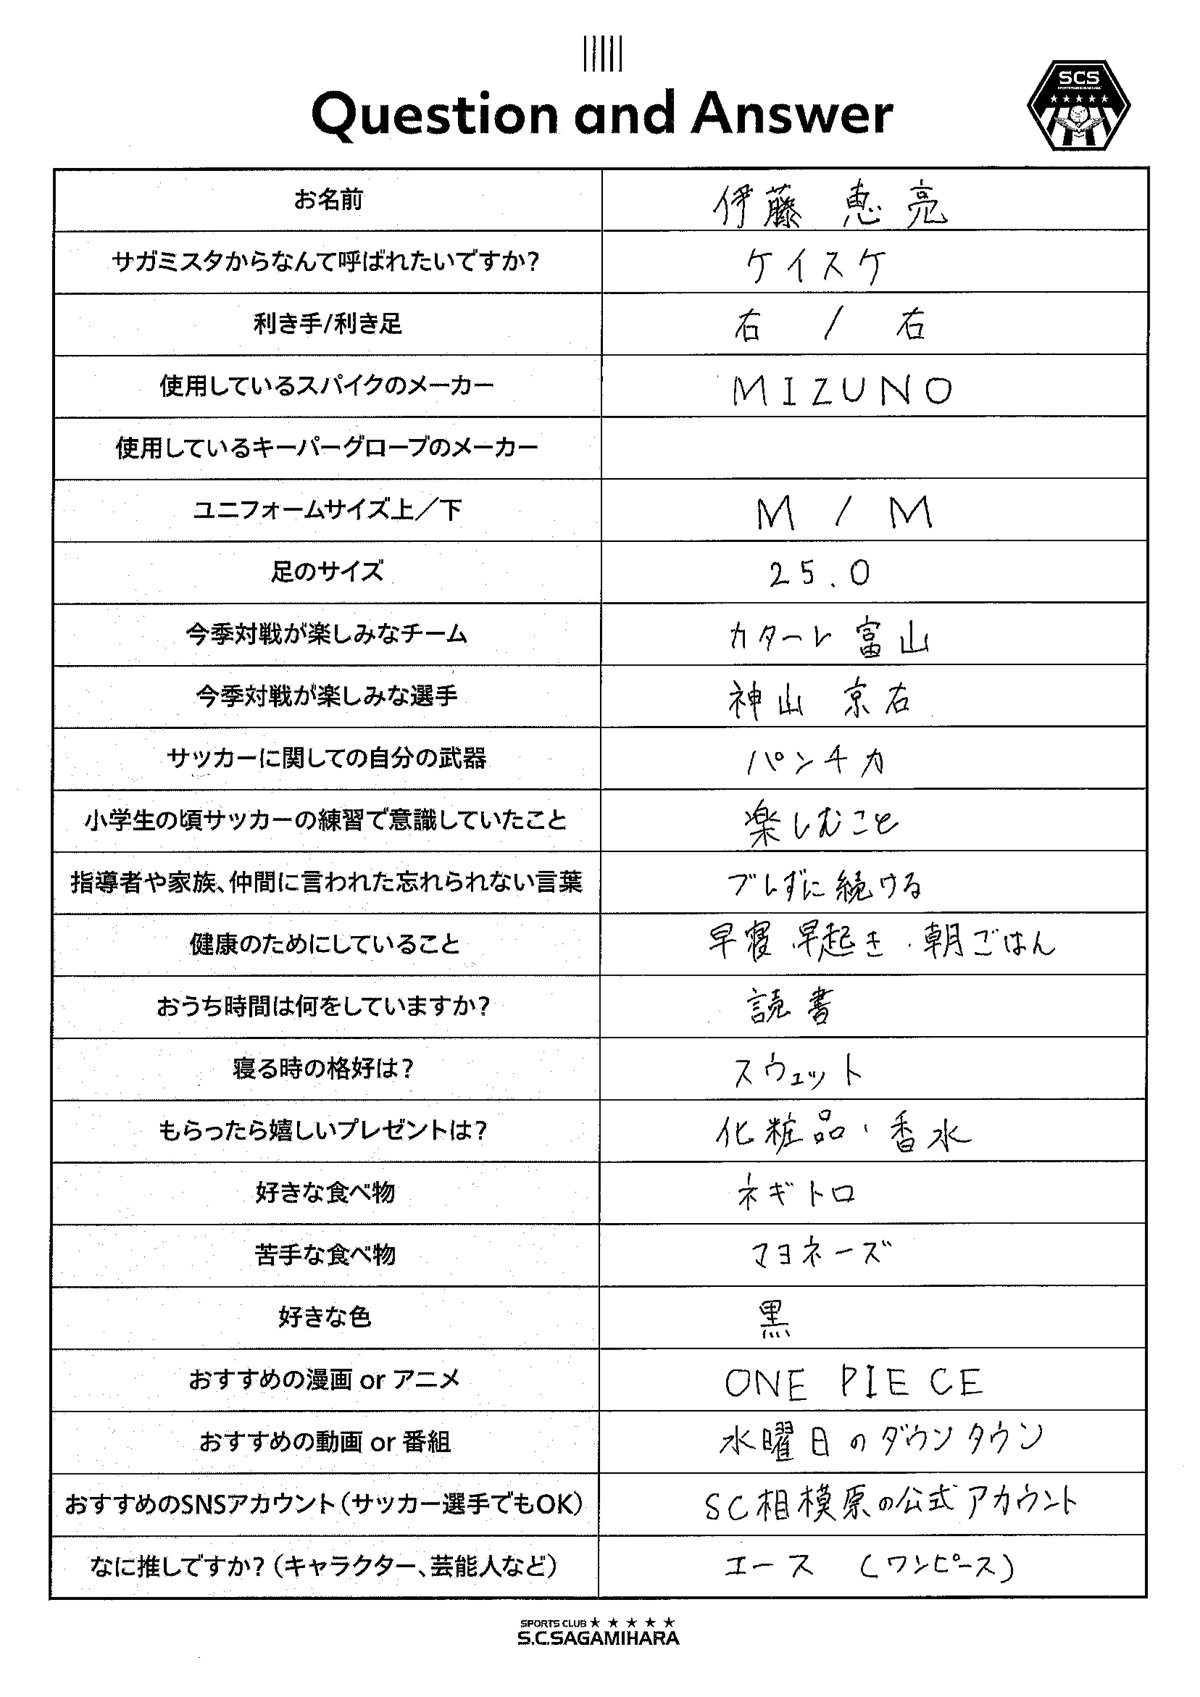 Question and Answer
SCS
お名前 伊藤 恵亮
サガミスタからなんて呼ばれたいですか? ケイスケ
利き手/利き足 右 / 右
使用しているスパイクのメーカー MIZUNO
使用しているキーパーグローブのメーカー
ユニフォームサイズ上/下 M / M
足のサイズ 25.0
今季対戦が楽しみなチーム カターレ富山
今季対戦が楽しみな選手 神山 京右
サッカーに関しての自分の武器 パンチ力
小学生の頃サッカーの練習で意識していたこと 楽しむこと
指導者や家族、仲間に言われた忘れられない言葉 ブレずに続ける
健康のためにしていること 早寝 早起き・朝ごはん
おうち時間は何をしていますか? 読書
寝る時の格好は? スウェット
もらったら嬉しいプレゼントは? 化粧品・香水
好きな食べ物 ネギトロ
苦手な食べ物 マヨネーズ
好きな色 黒
おすすめの漫画 or アニメ ONE PIECE
おすすめの動画 or 番組 水曜日のダウンタウン
おすすめのSNSアカウント(サッカー選手でもOK) SC相模原の公式アカウント
なに推しですか?(キャラクター、芸能人など) エース (ワンピース)
SPORTS CLUB ★ ★ ★ ★ ★
S.C.SAGAMIHARA